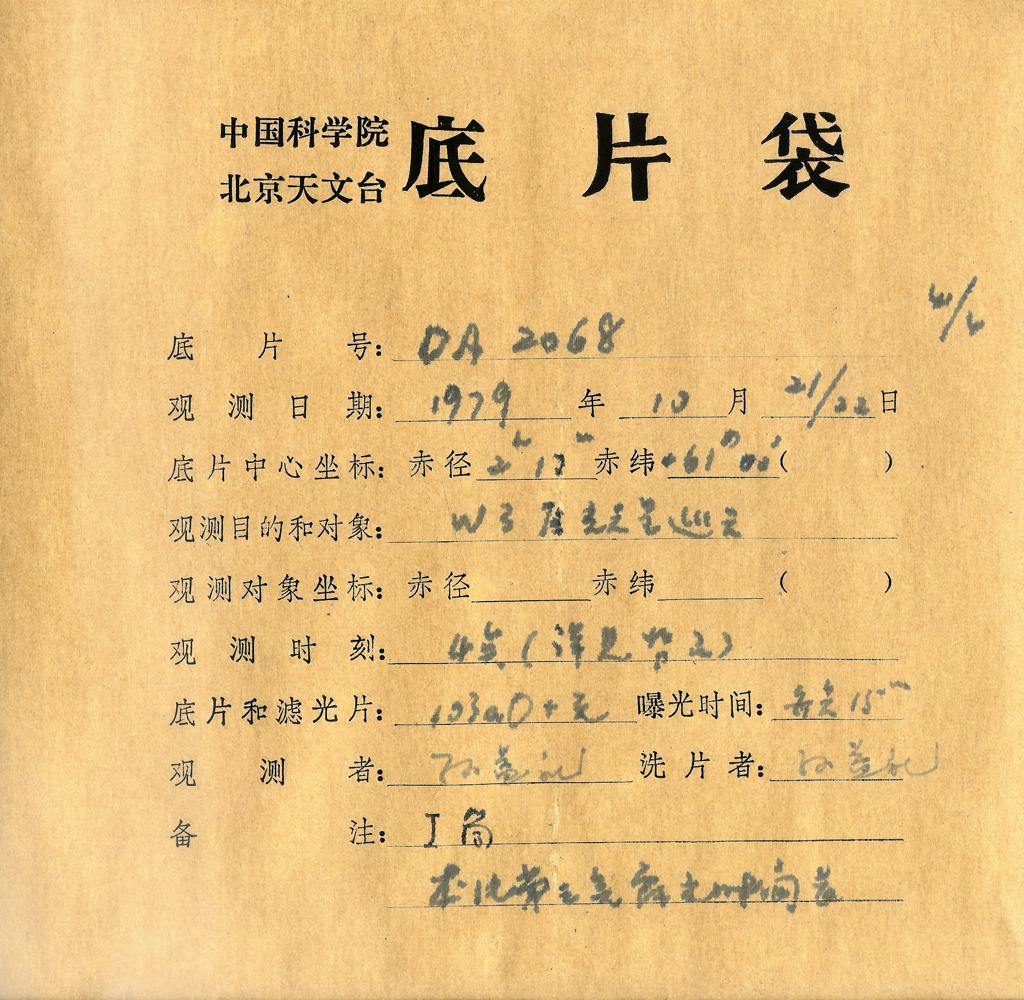 中国科学院
北京天文台
底片袋
底片号: DA 2068
观测日期: 1979年 10月 21/22日
底片中心坐标: 赤径 2h 17m 赤纬 +61° 00′ ( )
观测目的和对象: W3
观测对象坐标: 赤径 赤纬 ( )
观测时刻: 4点(详见背面)
底片和滤光片: 103aO+无 曝光时间: 各点15m
观测者: 孙益礼 洗片者: 孙益礼
备注: I 简